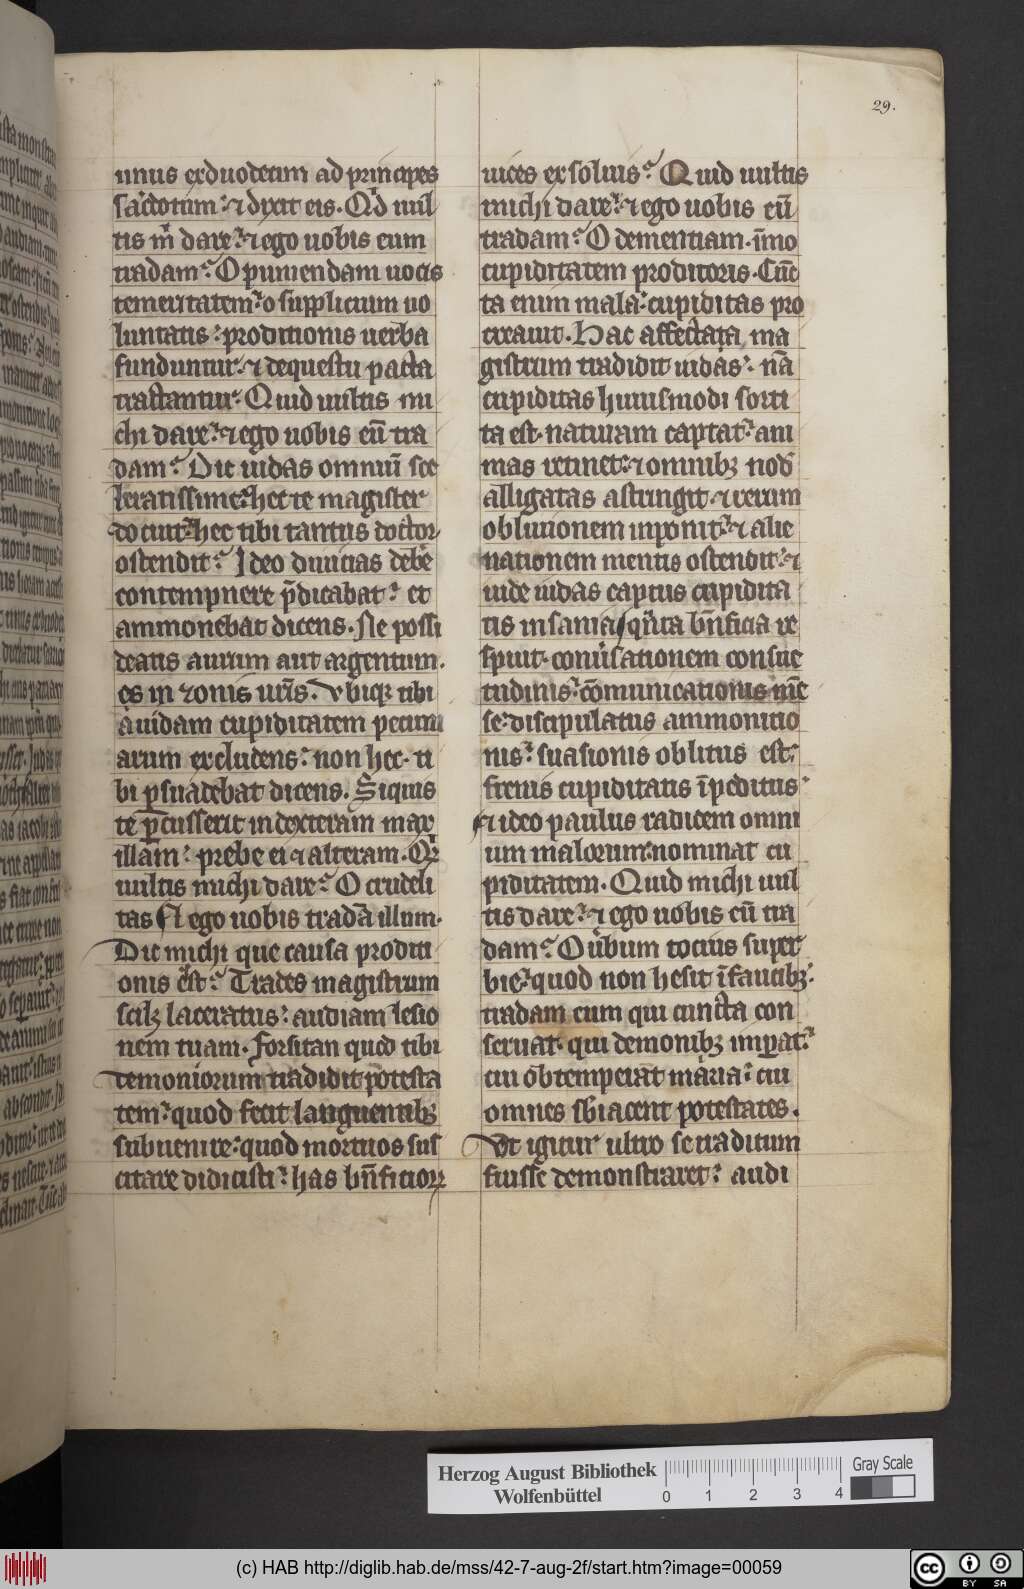 29.
unus ex duodecim ad principes
sac̾dotum: ⁊ dixit eis. Qd̾ uul
tis m̾ dare: ⁊ ego uobis eum
tradam? O puniendam uocis
temeritatem: o supplicium uo
luntatis: proditionis uerba
funduntur: ⁊ de questu pacta
tractantur. Quid uultis mi
chi dare: ⁊ ego uobis eū tra
dam? Dic iudas omniū sce
leratissime: hec te magister
docuit: hec tibi tantus doctor
ostendit? Ideo diuicias deb̾e
contempnere p̄dicabat: et
ammonebat dicens. Ne possi
deatis aurum aut argentum.
es in zonis ur̄is. Vbiqꝫ tibi
auidam cupiditatem pecuni
arum excludens: non hec ti
bi ꝑsuadebat dicens. Si quis
te ꝑcusserit in dexteram max
illam: prebe ei ⁊ alteram. Qd̾
uultis michi dare? O crudeli
tas Et ego uobis tradā illum.
Dic michi que causa proditi
onis est? Trades magistrum
scilꝫ laceratus: audiam lesio
nem tuam. Forsitan quod tibi
demoniorum tradidit potesta
tem: quod fecit languentibꝫ
subuenire: quod mortuos sus
citare didicisti: has bn̄ficioꝝ
uices exsoluis? Quid uultis
michi dare: ⁊ ego uobis eū
tradam? O dementiam. īmo
cupiditatem proditoris. Cūc
ta enim mala: cupiditas pro
creauit. Hac affectata, ma
gistrum tradidit iudas: nā
cupiditas huiusmodi sorti
ta est. naturam captat: ani
mas retinet: ⁊ omnibꝫ nod̾
alligatas astringit. ⁊ rerum
obliuionem inponit: ⁊ alie
nationem mentis ostendit: ⁊
inde iudas captus cupidita
tis insania quita bn̄ficia re
spuit. conu̾sationem consue
tudinis: cōmunicationis mē
se: discipulatus ammonitio
nis: suasionis oblitus est:
frenis cupiditatis īpeditus
Et ideo paulus radicem omni
um malorum: nominat cu
piditatem. Quid michi uul
tis dare: ⁊ ego uobis eū tra
dam? O u̾bum tocius super
bie: quod non hesit ī faucibꝫ.
tradam eum qui cuncta con
seruat. qui demonibꝫ imꝑat:
cui obtemperat maria: cui
omnes sb̾iacent potestates.
Vt igitur ultro se traditum
fuisse demonstraret: audi
Herzog August Bibliothek
Wolfenbüttel
0 1 2 3 4
Gray Scale
(c) HAB http://diglib.hab.de/mss/42-7-aug-2f/start.htm?image=00059
cc BY SA